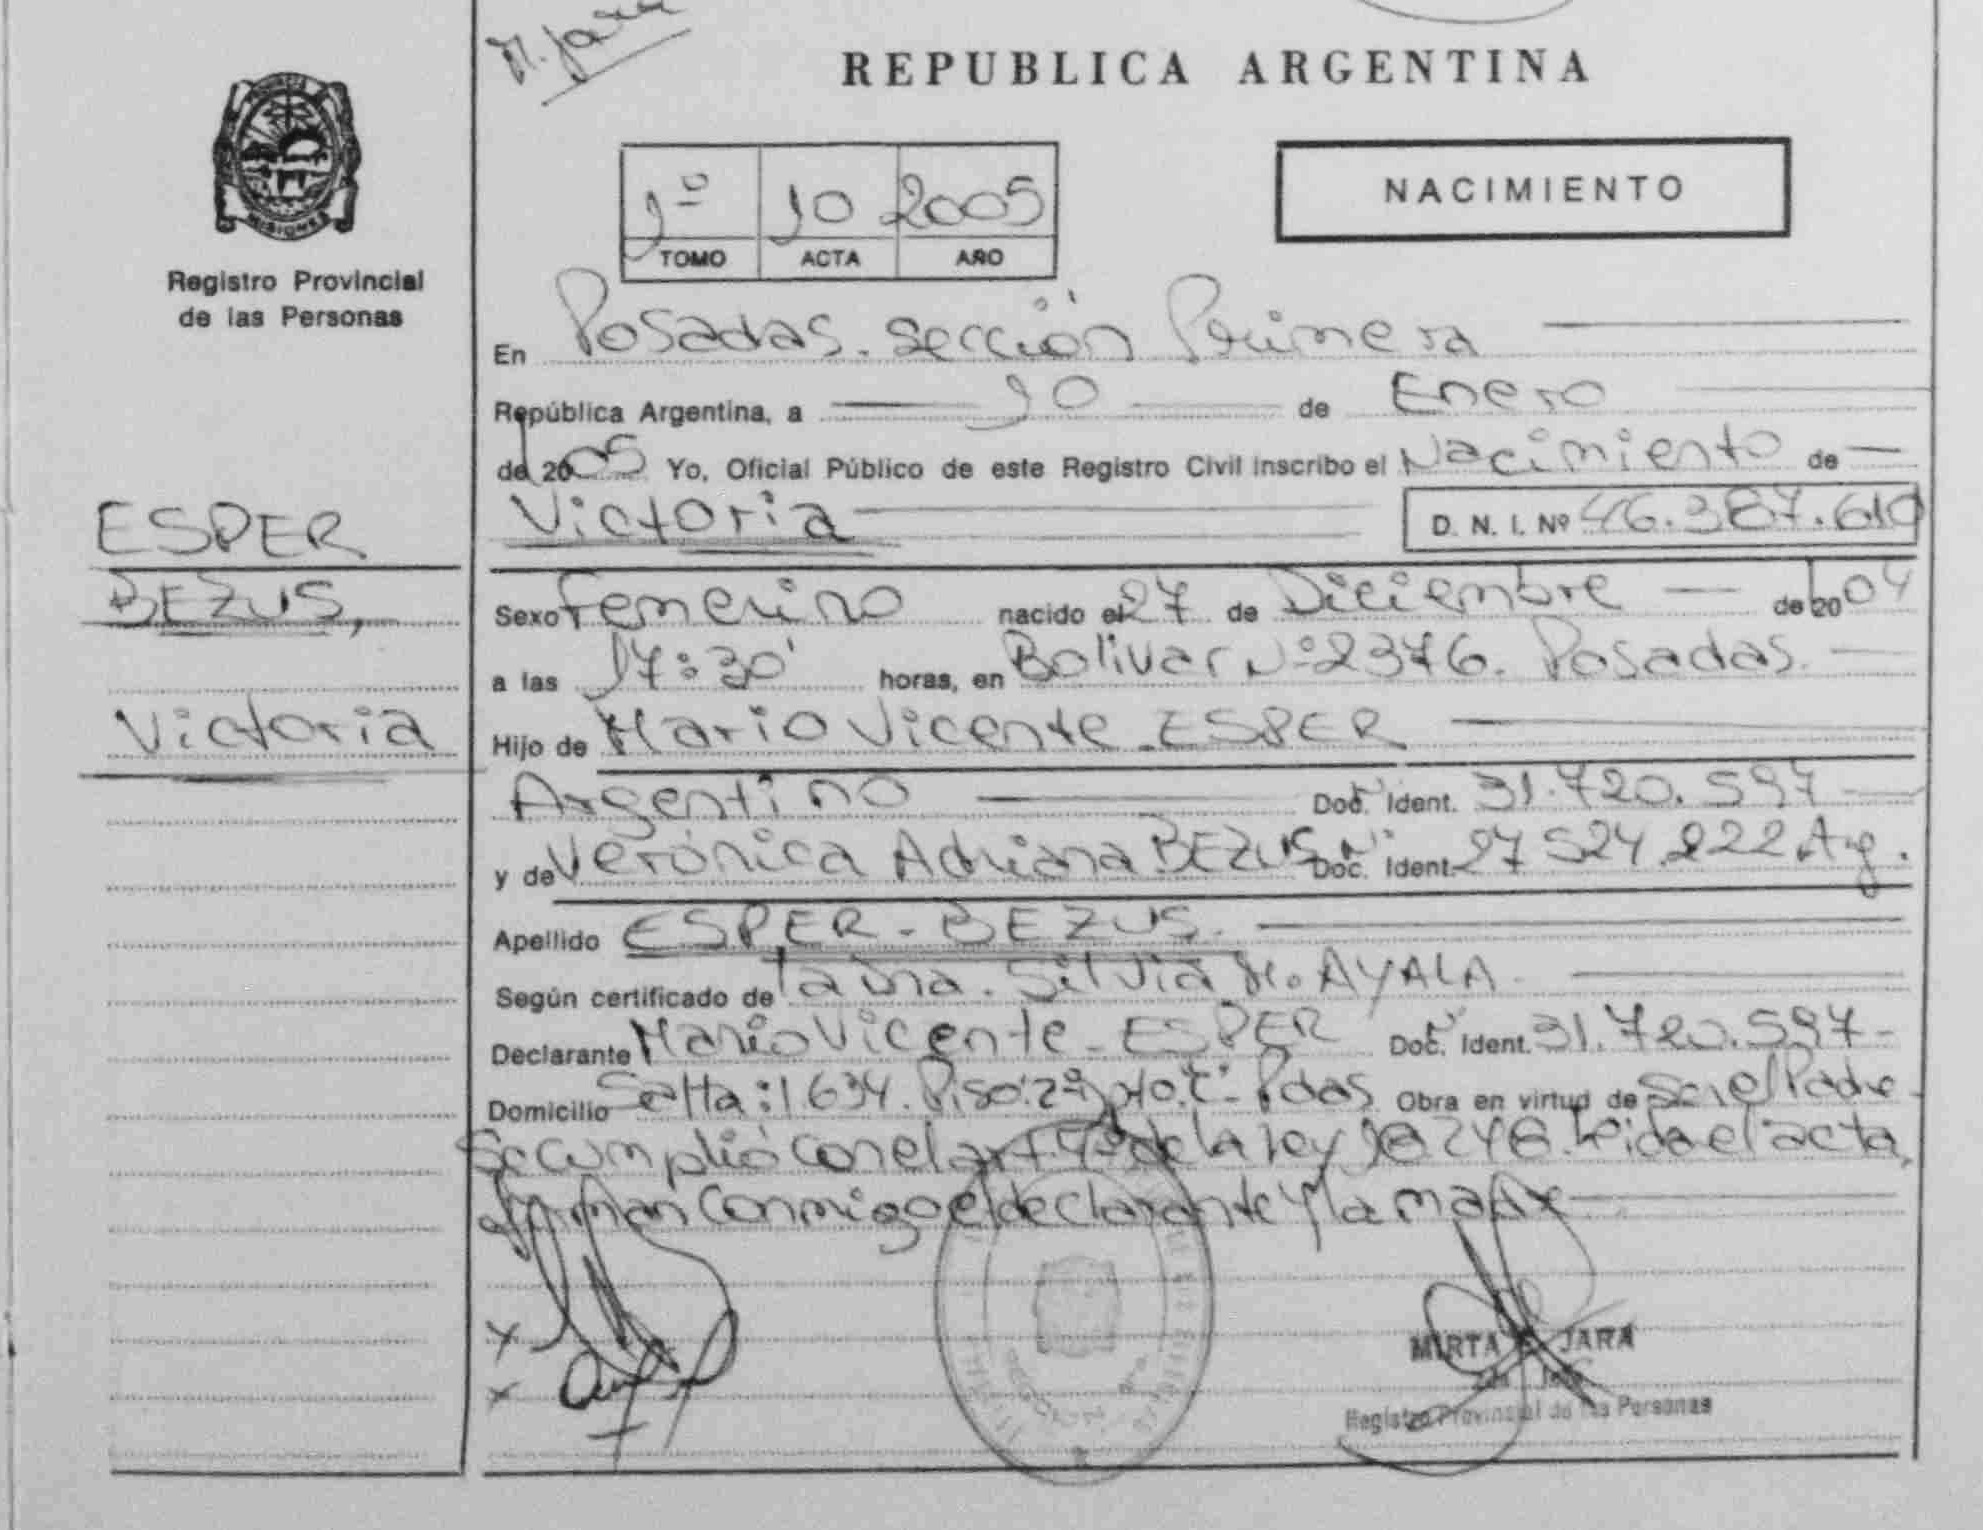 M. Jara
REPUBLICA ARGENTINA
MISIONES
Registro Provincial
de las Personas
1º 10 2005
TOMO ACTA AÑO
NACIMIENTO
En Posadas. sección Primera
República Argentina, a 10 de Enero
de 2005 Yo, Oficial Público de este Registro Civil inscribo el Nacimiento de
Victoria D. N. I. Nº 46.387.610
ESPER
BEZUS,
Victoria
Sexo Femenino nacido el 27 de Diciembre de 2004
a las 17:30' horas, en Bolivar Nº 2376. Posadas.
Hijo de Mario Vicente ESPER
Argentino Doc. Ident. 31.720.597
y de Verónica Adriana BEZUS Doc. Ident. 27 524.222 Arg.
Apellido ESPER-BEZUS.
Según certificado de la Dra. Silvia M. AYALA
Declarante Mario Vicente ESPER Doc. Ident. 31.720.597-
Domicilio Salta:1634. Piso:2º Dto.C- Pdas Obra en virtud de Ser el Padre
Se cumplió con el art. 4º de la ley 18248. Leida el acta,
firman conmigo el declarante y la madre
x
x
MIRTA JARA
Registro Provincial de las Personas